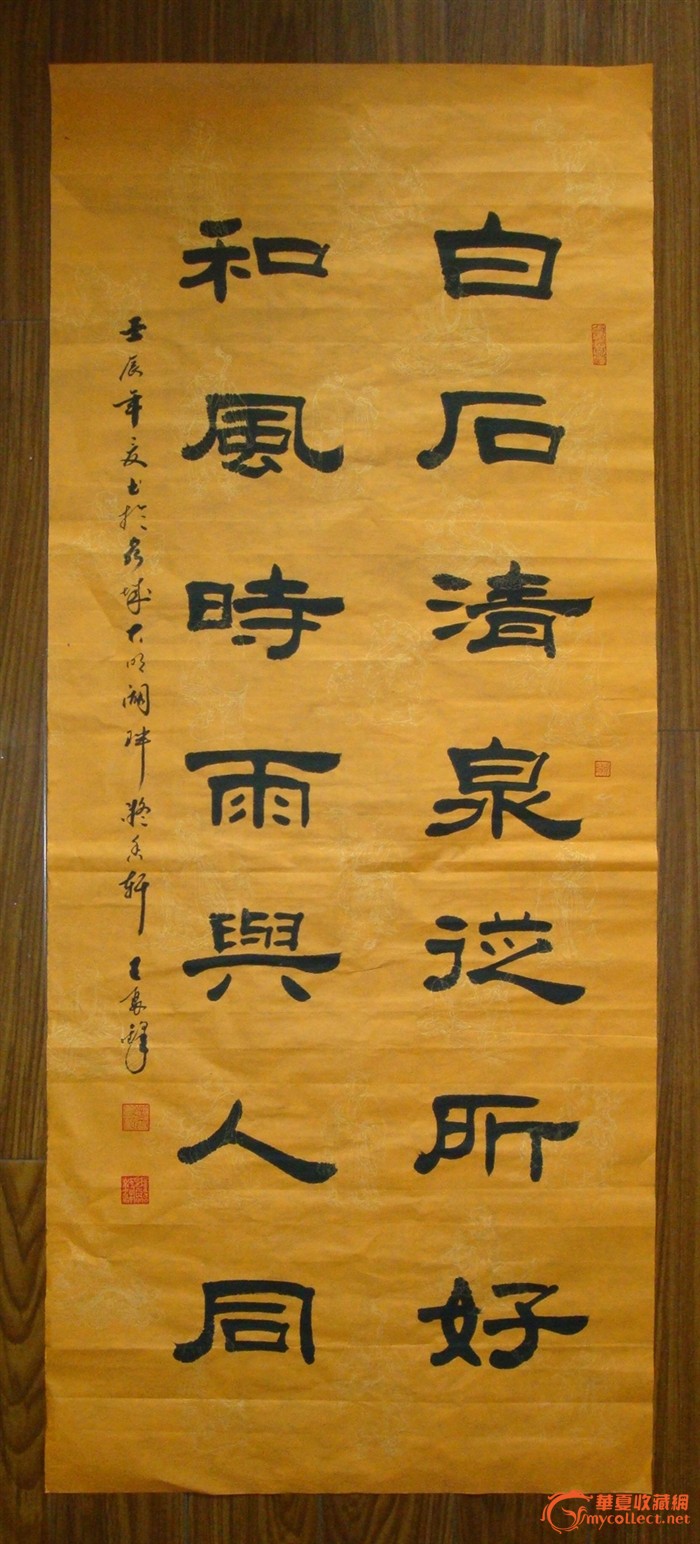 白石清泉從所好
和風時雨與人同
壬辰年夏书於泉城大明湖畔凝香轩
華夏收藏網
mycollect.net